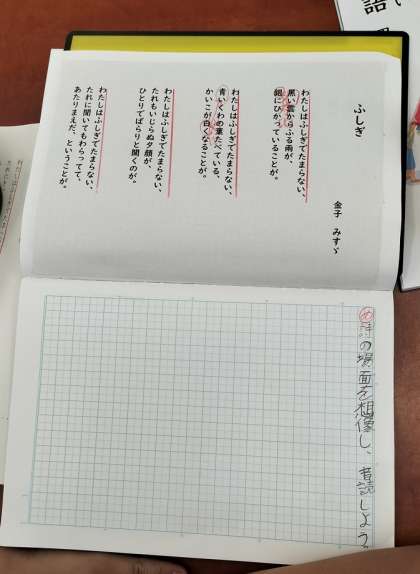 ふしぎ
金子 みすゞ
わたしはふしぎでたまらない、
黒い雲からふる雨が、
銀にひかっていることが。
わたしはふしぎでたまらない、
青いくわの葉たべている、
かいこが白くなることが。
わたしはふしぎでたまらない、
たれもいじらぬ夕顔が、
ひとりでぱらりと開くのが。
わたしはふしぎでたまらない、
たれに聞いてもわらってて、
あたりまえだ、ということが。
め 詩の場面を想像し、音読しよう。
語